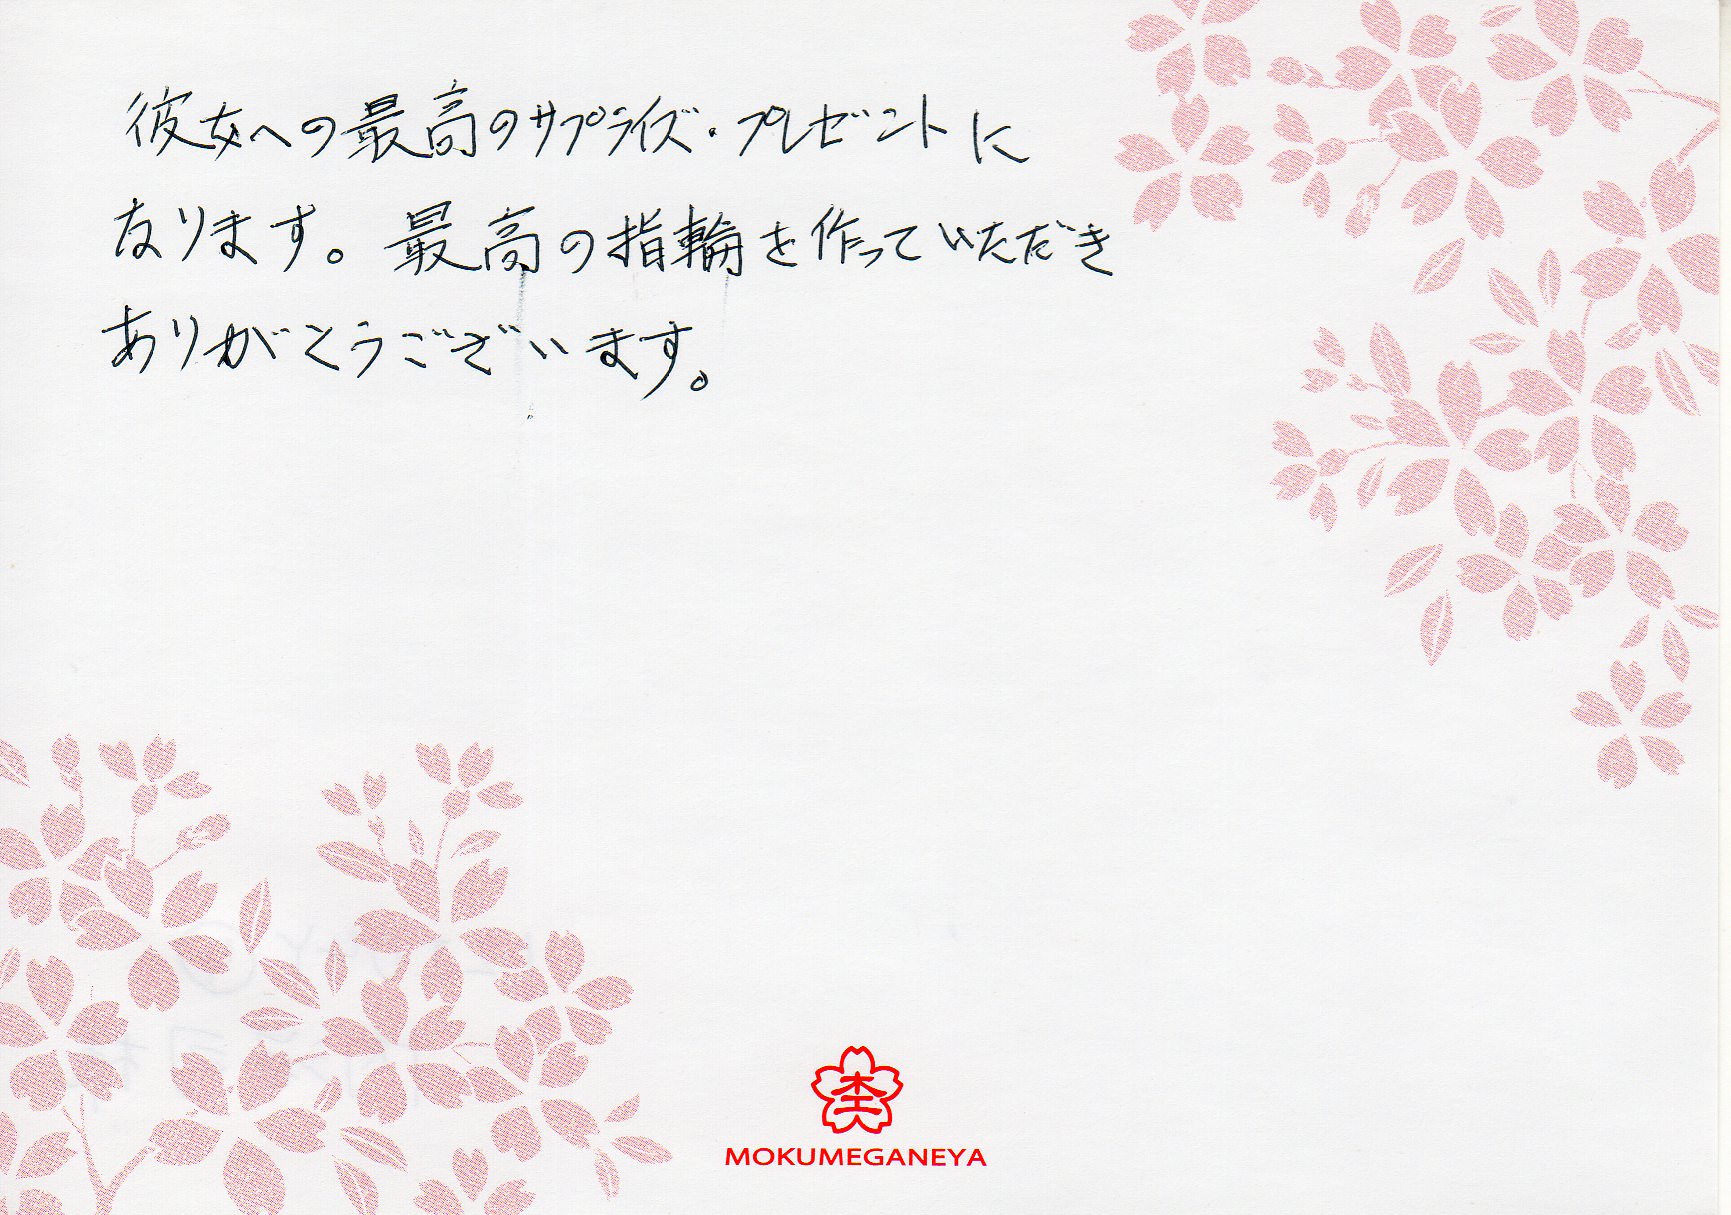 彼女への最高のサプライズ・プレゼントに
なります。最高の指輪を作っていただき
ありがとうございます。
MOKUMEGANEYA